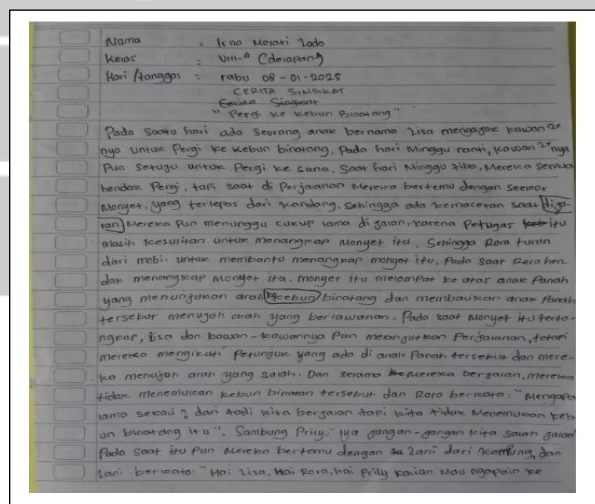 Nama : Irna Merati Lado
Kelas : VIII-A (delapan A)
Hari /tanggal : rabu 08-01-2025
CERITA SINGKAT
Cerita Singkat
"Pergi ke Kebun Binatang"
Pada Suatu hari ada Seorang anak bernama Lisa mengajak kawan 2x
nya untuk Pergi ke kebun binatang, Pada hari Minggu nanti, kawan 2x nya
Pun Setuju untuk Pergi ke sana. Saat hari Minggu tiba, Mereka Semua
hendak Pergi, tapi saat di Perjalanan Mereka bertemu dengan Seekor
Monyet, yang terlepas dari kandang. Sehingga ada kemacetan saat dija-
lan Mereka Pun menunggu cukup lama di jalan, karena Petugas itu
masih kesulitan untuk menangkap Monyet itu. Sehingga Rora turun
dari mobil untuk membantu menangkap monyet itu, Pada saat Rora hen-
dak menangkap Monyet ita. monyet itu melompat ke atas anak Panah
yang menunjukan arah kebun binatang dan membalikan anak Panah
tersebut menujuh arah yang berlawanan. Pada saat Monyet itu terta-
ngkap, Lisa dan kawan-kawannya Pun melanjutkan Perjalanan, tetapi
mereka mengikuti Petunjuk yang ada di anak Panah tersebut dan mere-
ka menujuh arah yang salah. Dan selama Mereka berjalan, mereka
tidak menemukan kebun binatan tersebut dan Rora berkata: "Mengapa
lama sekali? dari tadi kita berjalan tapi kita tidak Menemukan keb
un binatang itu". Sambung Prily: "iya jangan-jangan kita salah jalan"
Pada saat itu Pun Mereka bertemu dengan Lani dari kampung, dan
Lani berkata: "Hai Lisa, Hai Rora, hai Prilly kalian Mau ngapain ke